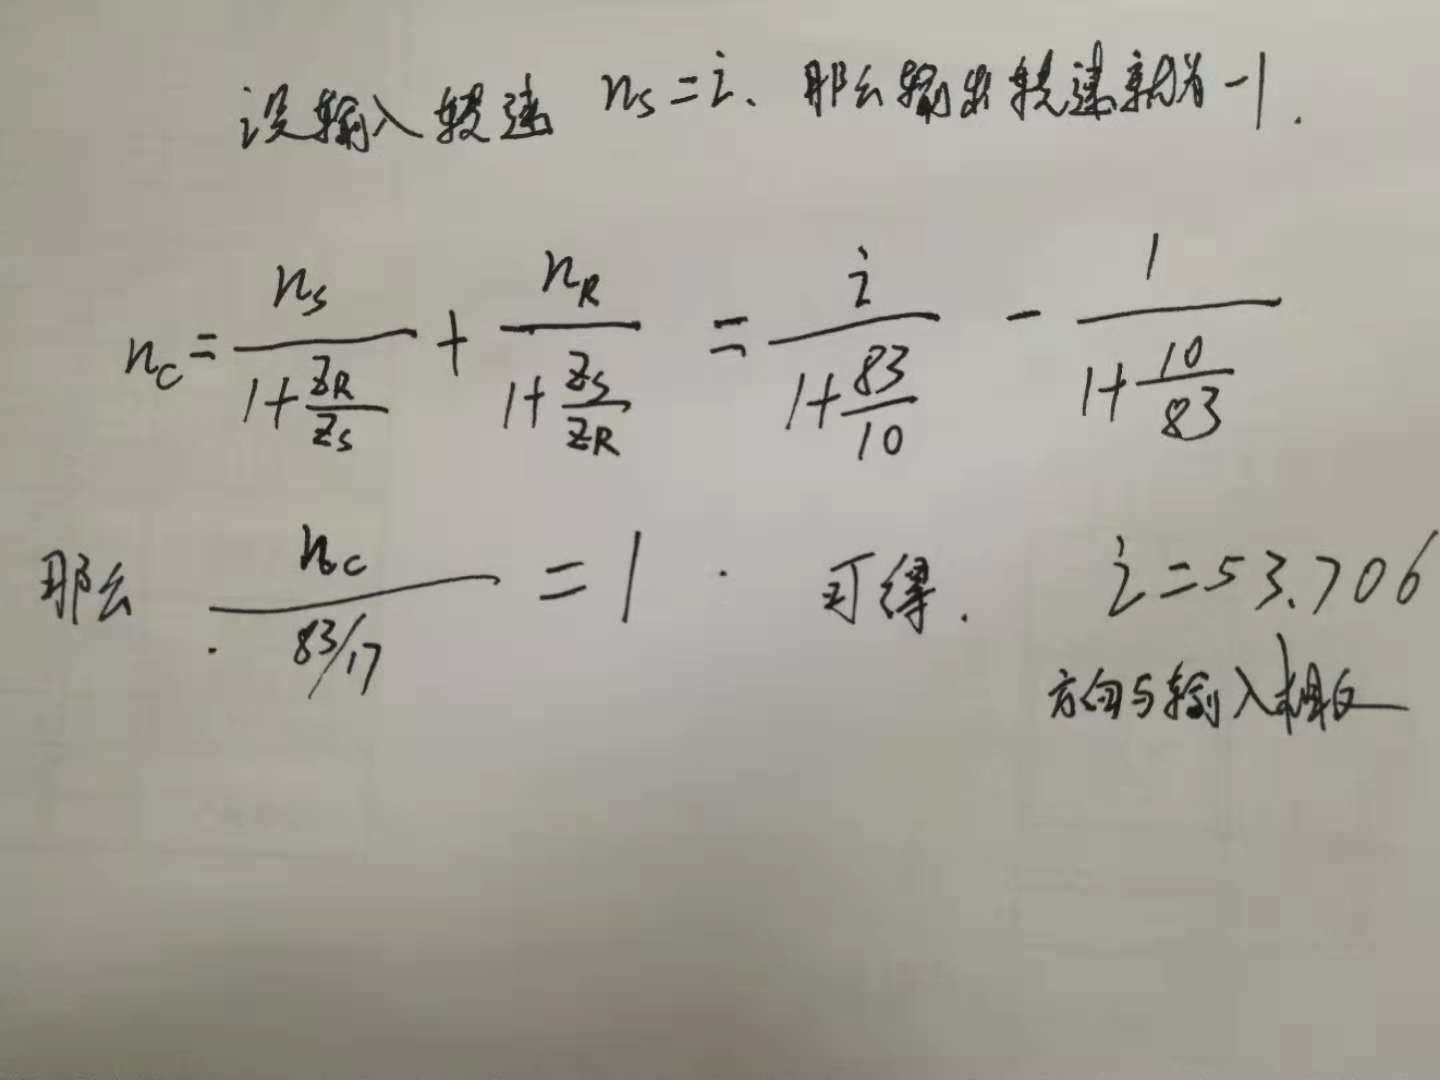 设输入转速 nₛ=i、那么输出转速就为-1.
n_C = n_S/(1+Z_R/Z_S) + n_R/(1+Z_S/Z_R) = i/(1+83/10) - 1/(1+10/83)
那么 n_C/(83/17) = 1. 可得. i=53.706
方向与输入相反